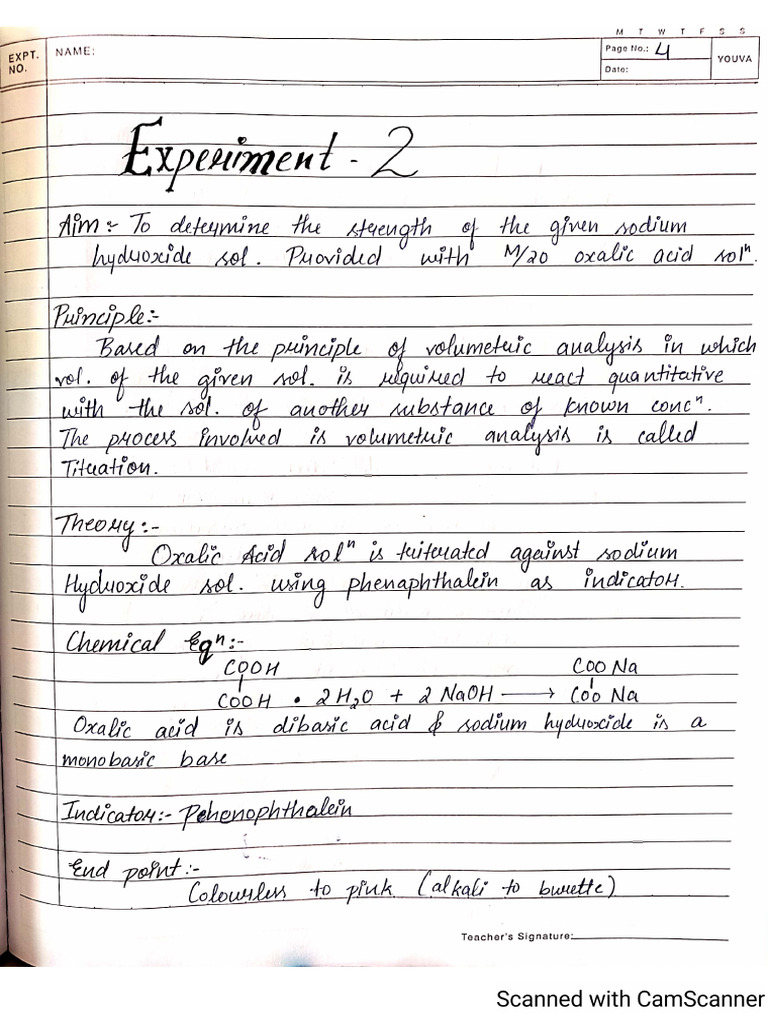 M T W T F S S
EXPT. NO.
NAME:
Page No.: 4
Date:
YOUVA
Experiment - 2
Aim :- To determine the strength of the given sodium
hydroxide sol. Provided with M/20 oxalic acid solⁿ.
Principle:-
Based on the principle of volumetric analysis in which
vol. of the given sol. is required to react quantitative
with the sol. of another substance of known concⁿ.
The process involved is volumetric analysis is called
Titration.
Theory:-
Oxalic Acid solⁿ is triterated against sodium
Hydroxide sol. using phenaphthalein as indicator.
Chemical Eqⁿ:-
COOH COO Na
COOH • 2H₂O + 2 NaOH ⟶ COO Na
Oxalic acid is dibasic acid & sodium hydroxide is a
monobasic base
Indicator:- Pehenophthalein
End point:-
Colourless to pink (alkali to burette)
Teacher's Signature:
Scanned with CamScanner